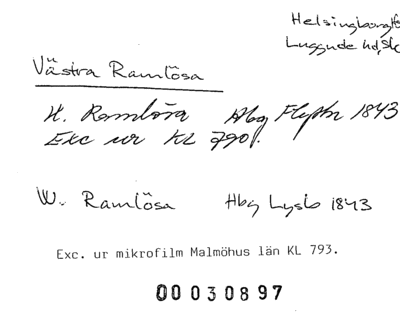 Helsingborg
Luggude hd, Sk
Västra Ramlösa
V. Ramlösa Hbg 1843
Exc ur KL 790.
W. Ramlösa Hbg 1843
Exc. ur mikrofilm Malmöhus län KL 793.
00030897